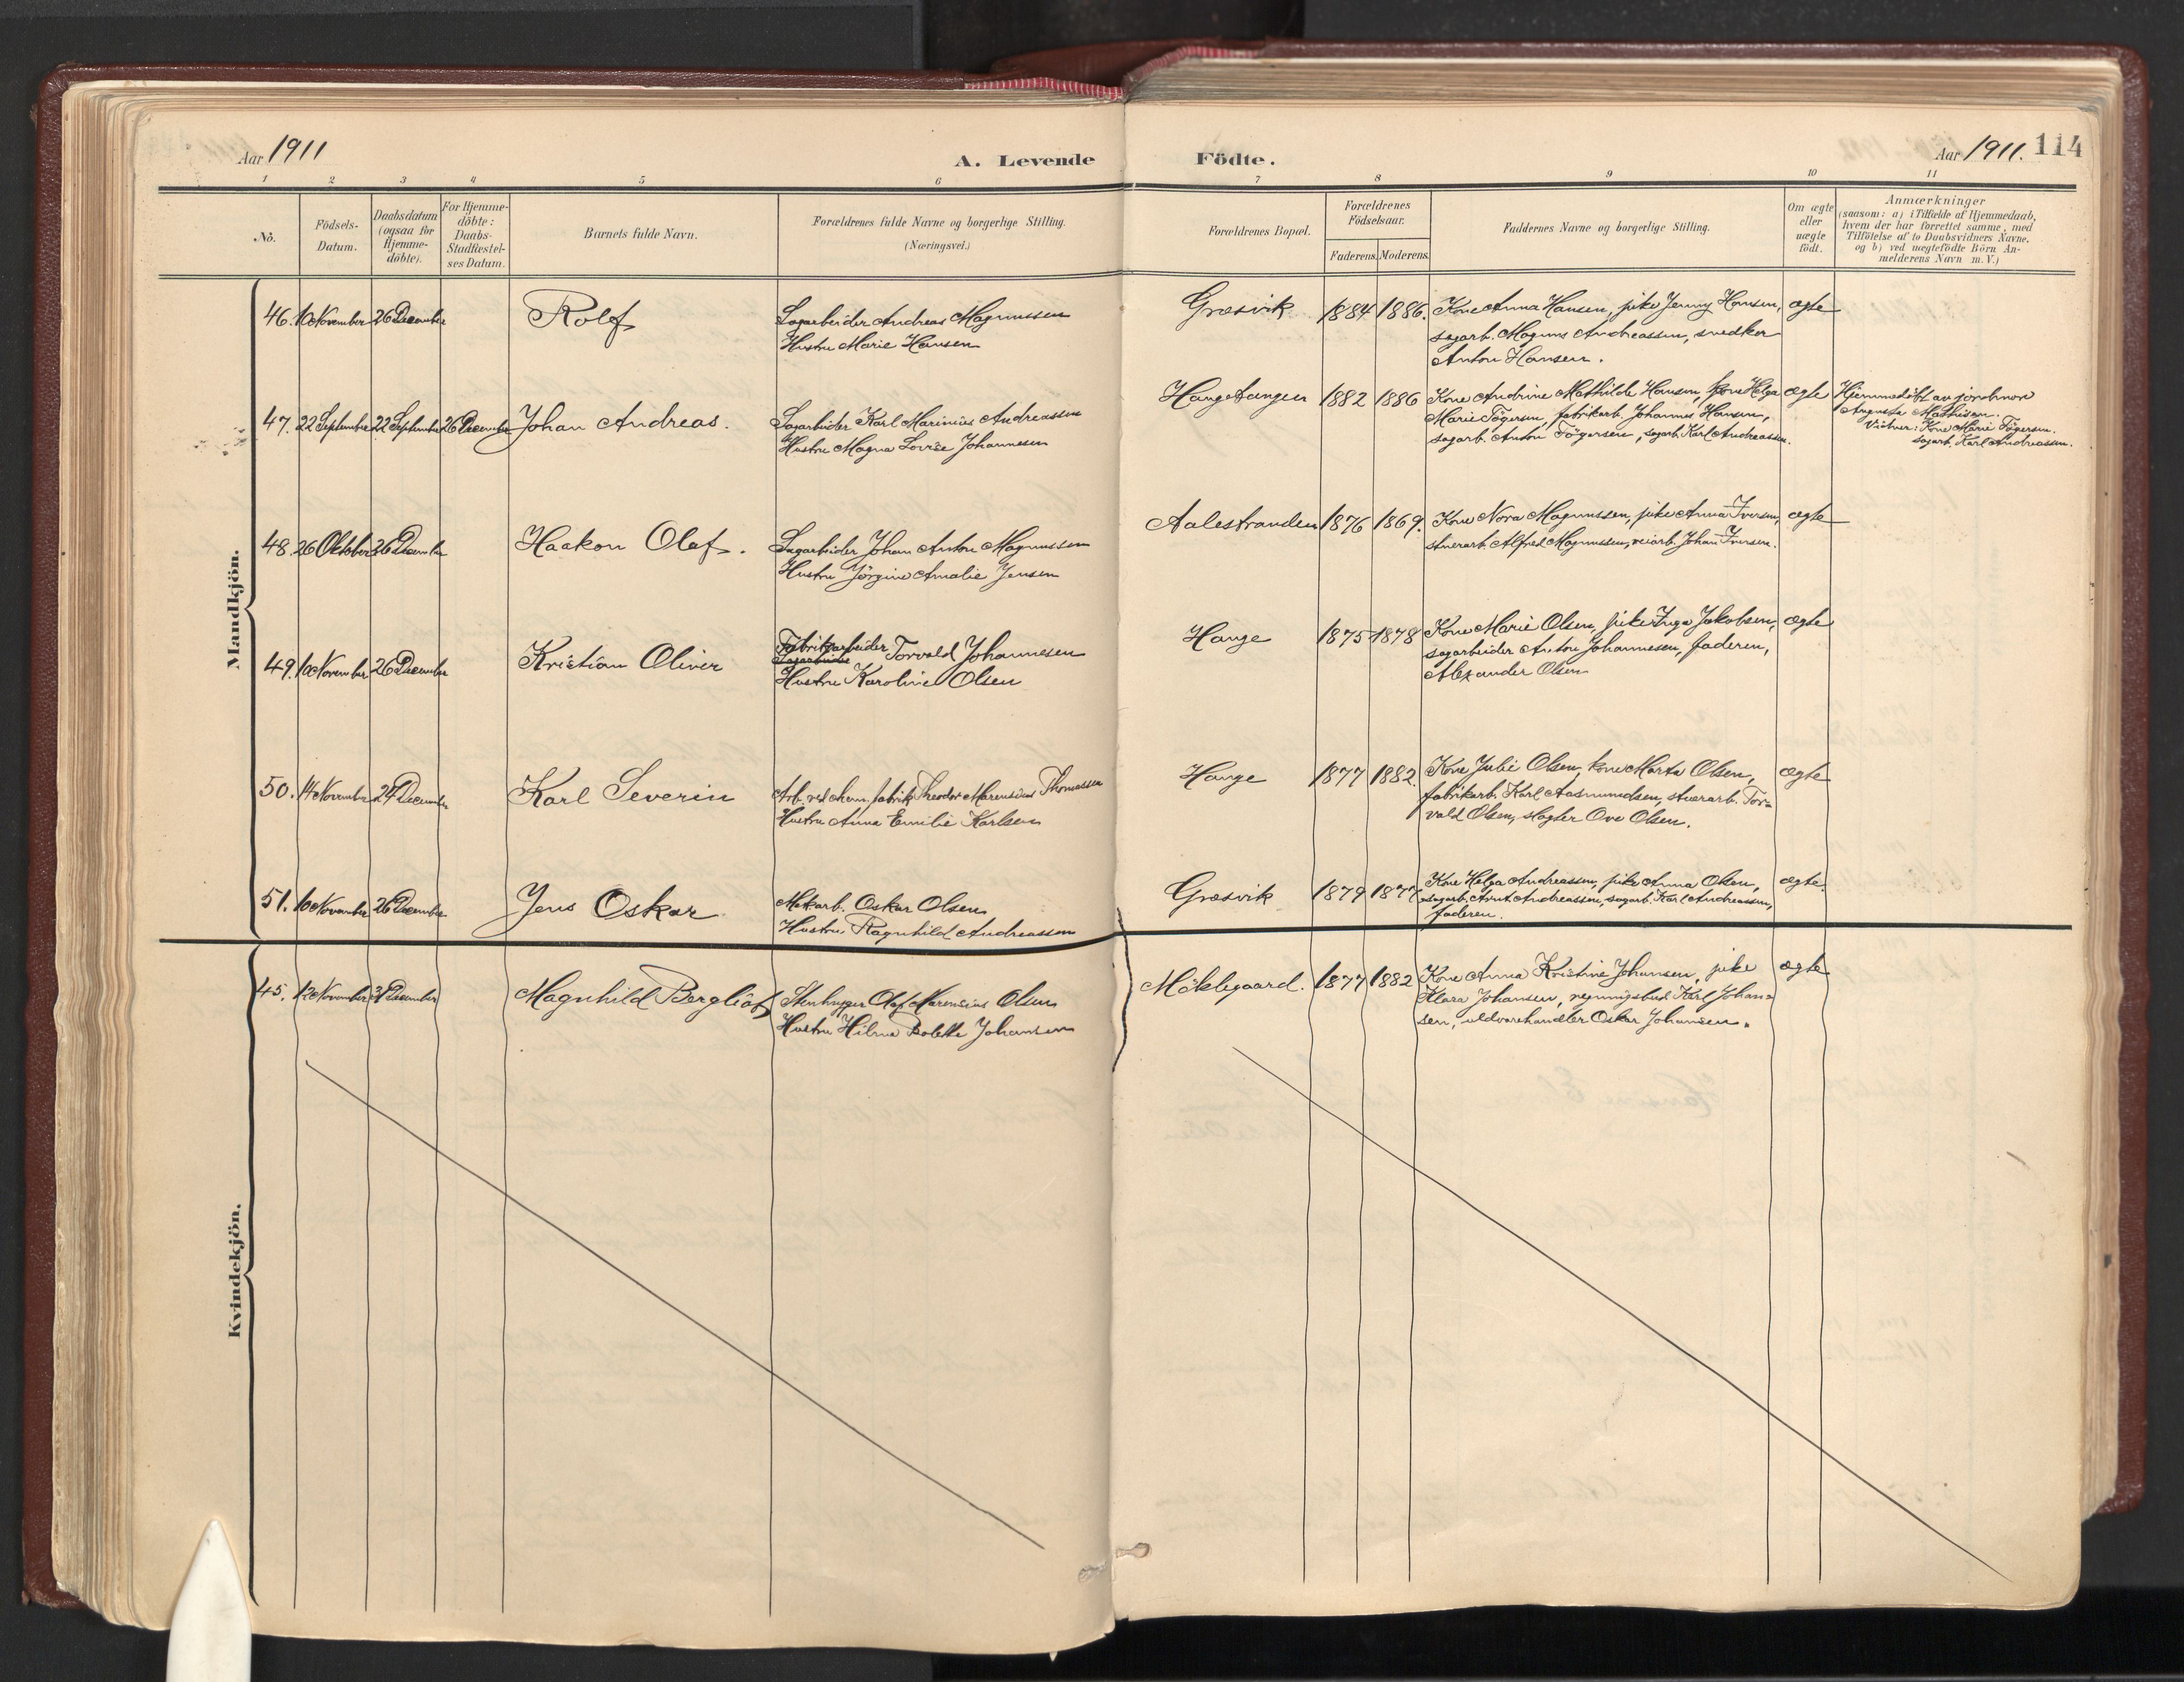 Aar 1911
A. Levende
Födte.
Aar 1911. 114
1 2 3 4 5 6 7 8 9 10 11
No.
Födsels-
Datum.
Daabsdatum
(ogsaa for
Hjemme-
döbte).
For Hjemme-
döbte:
Daabs-
Stadfæstel-
ses Datum.
Barnets fulde Navn.
Forældrenes fulde Navne og borgerlige Stilling.
(Næringsvei.)
Forældrenes Bopæl.
Forældrenes
Födselsaar.
Faderens. Moderens.
Faddernes Navne og borgerlige Stilling.
Om ægte
eller
uægte
födt.
Anmærkninger
(saasom: a) i Tilfælde af Hjemmedaab,
hvem der har forrettet samme, med
Tilföielse af to Daabsvidners Navne,
og b) ved uægtefödte Börn An-
melderens Navn m. V.)
Mandkjön.
46. 10 November 26 December Rolf
Sagarbeider Andreas Magnussen
Hustru Marie Hansen
Græsvik 1884 1886.
Kone Anna Hansen, pike Jenny Hansen,
sagarb. Magnus Andreassen, snedker
Anton Hansen.
ægte
47. 22 September 22 September 26 December Johan Andreas.
Sagarbeider Karl Marinius Andreassen
Hustru Magna Lovise Johannesen
Haugetangen 1882 1886
Kone Andrine Mathilde Hansen, kone Helga
Marie Tögersen, fabrikarb. Johannes Hansen,
sagarb. Anton Tögersen, sagarb. Karl Andreassen.
ægte
Hjemmedöbt av jordmor
Augusta Mathisen.
Vidner: Kone Marie Tögersen.
sagarb. Karl Andreassen.
48. 26 Oktober 26 December Haakon Olaf.
Sagarbeider Johan Anton Magnussen
Hustru Jörgine Amalie Jensen
Aalestranden 1876 1869.
Kone Nora Magnussen, pike Anna Iversen,
stuerarb. Alfred Magnussen, veiarb. Johan Iversen.
ægte
49. 10 November 26 December Kristian Oliver
Fabrikarbeider Torvald Johannesen
Sagarbeider
Hustru Karoline Olsen
Hauge 1875 1878
Kone Marie Olsen, pike Inga Jakobsen,
sagarbeider Anton Johannesen, faderen,
Alexander Olsen
ægte
50. 14 November 27 December Karl Severin
Arb. ved chem. fabrik Theodor Marensius Thomassen
Hustru Anna Emilie Karlsen
Hauge 1877 1882.
Kone Julie Olsen, kone Marta Olsen,
fabrikarb. Karl Aasmundsen, stuerarb. Tor-
vald Olsen, slagter Ove Olsen.
ægte
51. 10 November 26 December Jens Oskar
Mekarb. Oskar Olsen
Hustru Ragnhild Andreassen
Græsvik 1879 1877
Kone Helga Andreassen, pike Anna Olsen,
sagarb. Arnt Andreassen, sagarb. Karl Andreassen,
faderen.
ægte.
Kvindekjön.
45. 12 November 31 December Magnhild Bergliot
Stenhugger Olaf Marensius Olsen
Hustru Hilma Bolette Johansen
Möklegaard. 1877 1882
Kone Anna Kristine Johansen, pike
Klara Johansen, regningsbud Karl Johan-
sen, uldvarehandler Oskar Johansen.
ægte